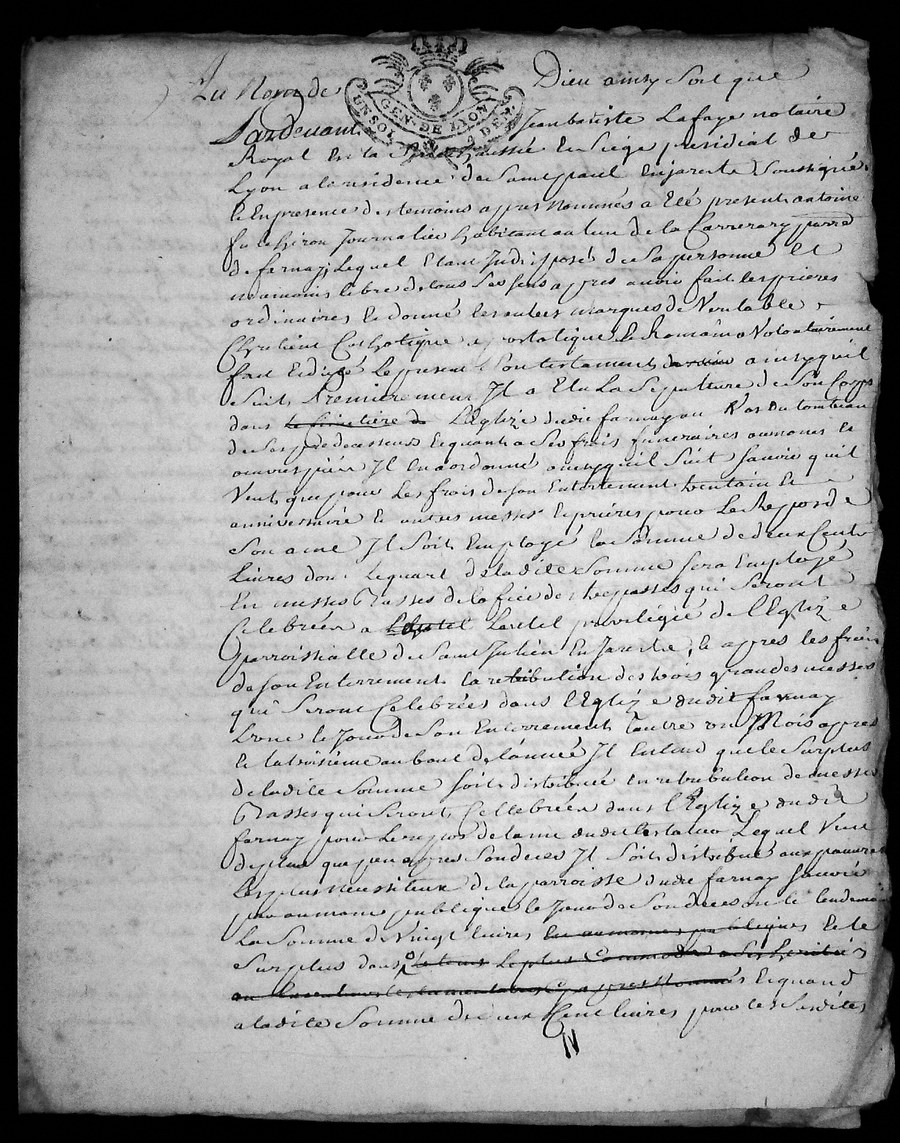 Au Nom de Dieu ainsy soit que
GEN. DE LYON
UN SOL 4 DEN.
Pardevant Jean batiste Lafaye notaire
Royal En la Senechaussée En Siege presidial de
Lyon a la residence de Saint paul Enjarest Soussigné
Et En presence des temoins apres nommés a Eté present antoine
fulchiron Journalier habitant au lieu de la parroisse
de farnay, Lequel Etant Indisposé de Sa personne Et
neamoins libre de tous Ses Sens apres avoir fait les prieres
ordinaires, Et donné les autres marques de Veritable
Chretient Catholique apostolique Et Romain a Volontairement
fait Et dicté Le present Son testament ainsy quil
Suit, Premierement Il a Elu La Sepulture de Son Corps
dans le simetiere de L'Eglize dudit farnay au Vas du tombeau
de Ses predecesseurs Et quant a Ses frais funeraires aumones Et
oeuvres pies Il En a ordonné ainsy quil Suit Savoir quil
Veut que pour Les frais de Son Enterrement trentain Et
anniversaire Et autres messes Et prieres pour Le Repos de
Son ame Il Soit Employé la Somme de deux Cents
Livres dont Lequart de ladite Somme Sera Employé
En messes Basses de la fice des trepasses qui Seront
Celebréés a L'autel privilegié de l'Eglize
parroissialle de Saint Julien En Jarest, Et apres les frais
de Son Enterrement La retribution des trois grandes messes
qui Seront Celebrées dans l'Eglize dudit farnay
L'une le Jour de Son Enterrement l'autre un Mois apres
Et la troisieme au bout de l'année Il Entend que Le Surplus
de ladite Somme Soit distribuée En retribution de messes
Basses qui Seront Cellebréés dans l'Eglize dudit
farnay pour Le repos de lame dudit testateur Lequel Veut
de plus que peu apres Son deces Il Soit distribué aux pauvres
Les plus necessiteux de la parroisse dudit farnay Savoir
par aumone publique le Jour de Son deces ou le lendemain
La Somme de Vingt livres En aumones publiques Et le
Surplus dans Le tems Le plus Commode a Ses heritiers
apres nommés Et quand
a ladite Somme de deux Cent livres pour les Susdites